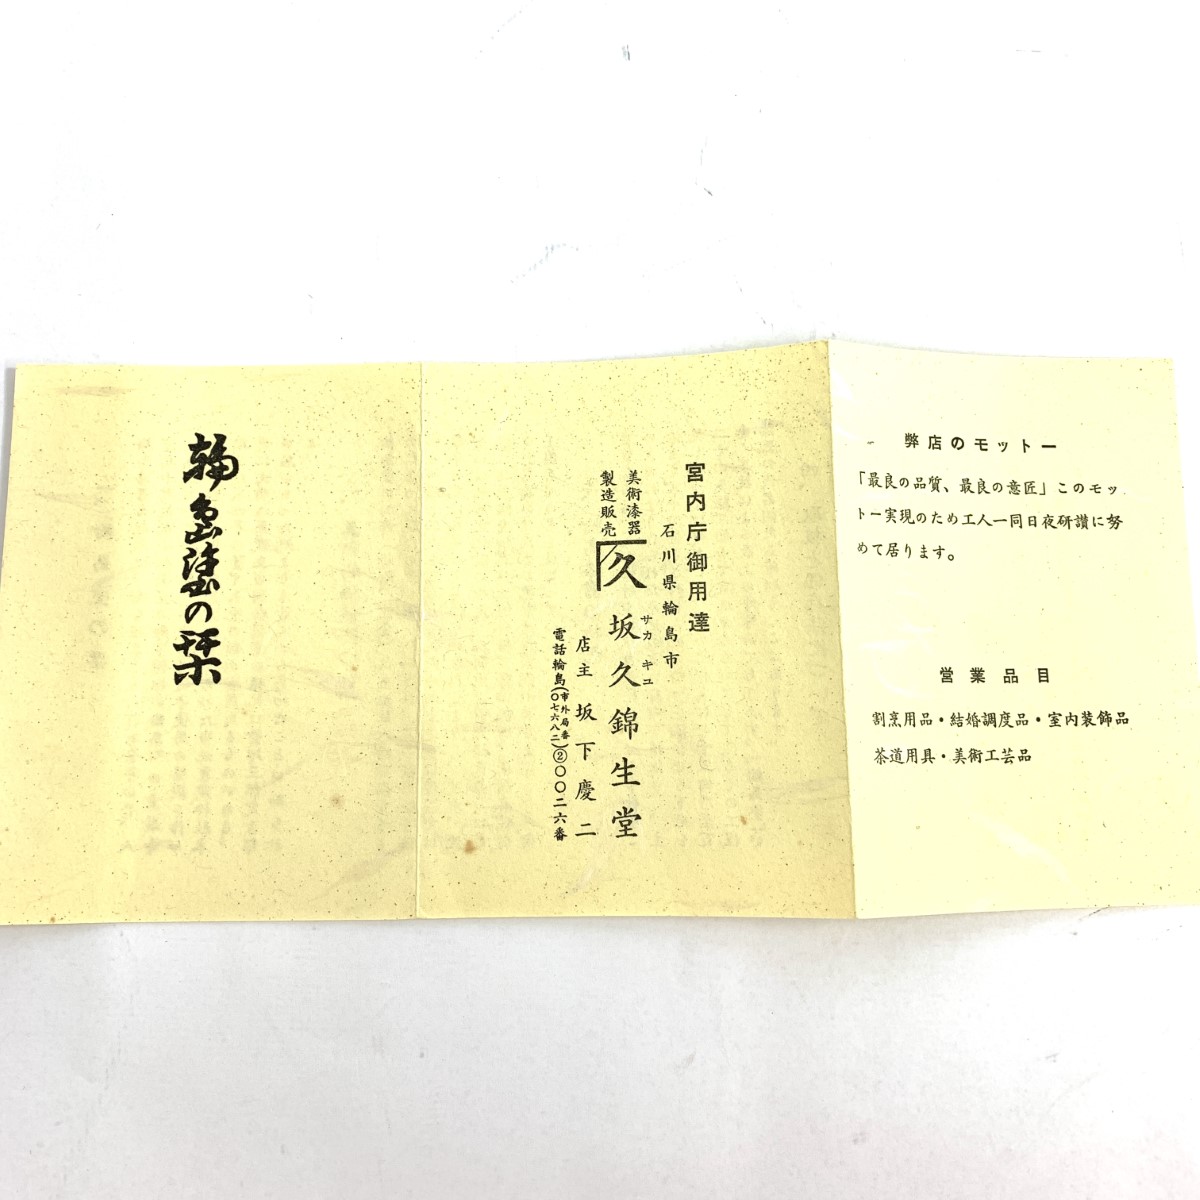 弊店のモットー
「最良の品質、最良の意匠」このモッ
トー実現のため工人一同日夜研讃に努
めて居ります。
営業品目
割烹用品・結婚調度品・室内装飾品
茶道用具・美術工芸品
宮内庁御用達
石川県輪島市
美術漆器
製造販売
久 坂久錦生堂
サカ キユ
店主 坂下慶二
電話輪島(市外局番〇七六八二)②〇〇二六番
輪島塗の栞